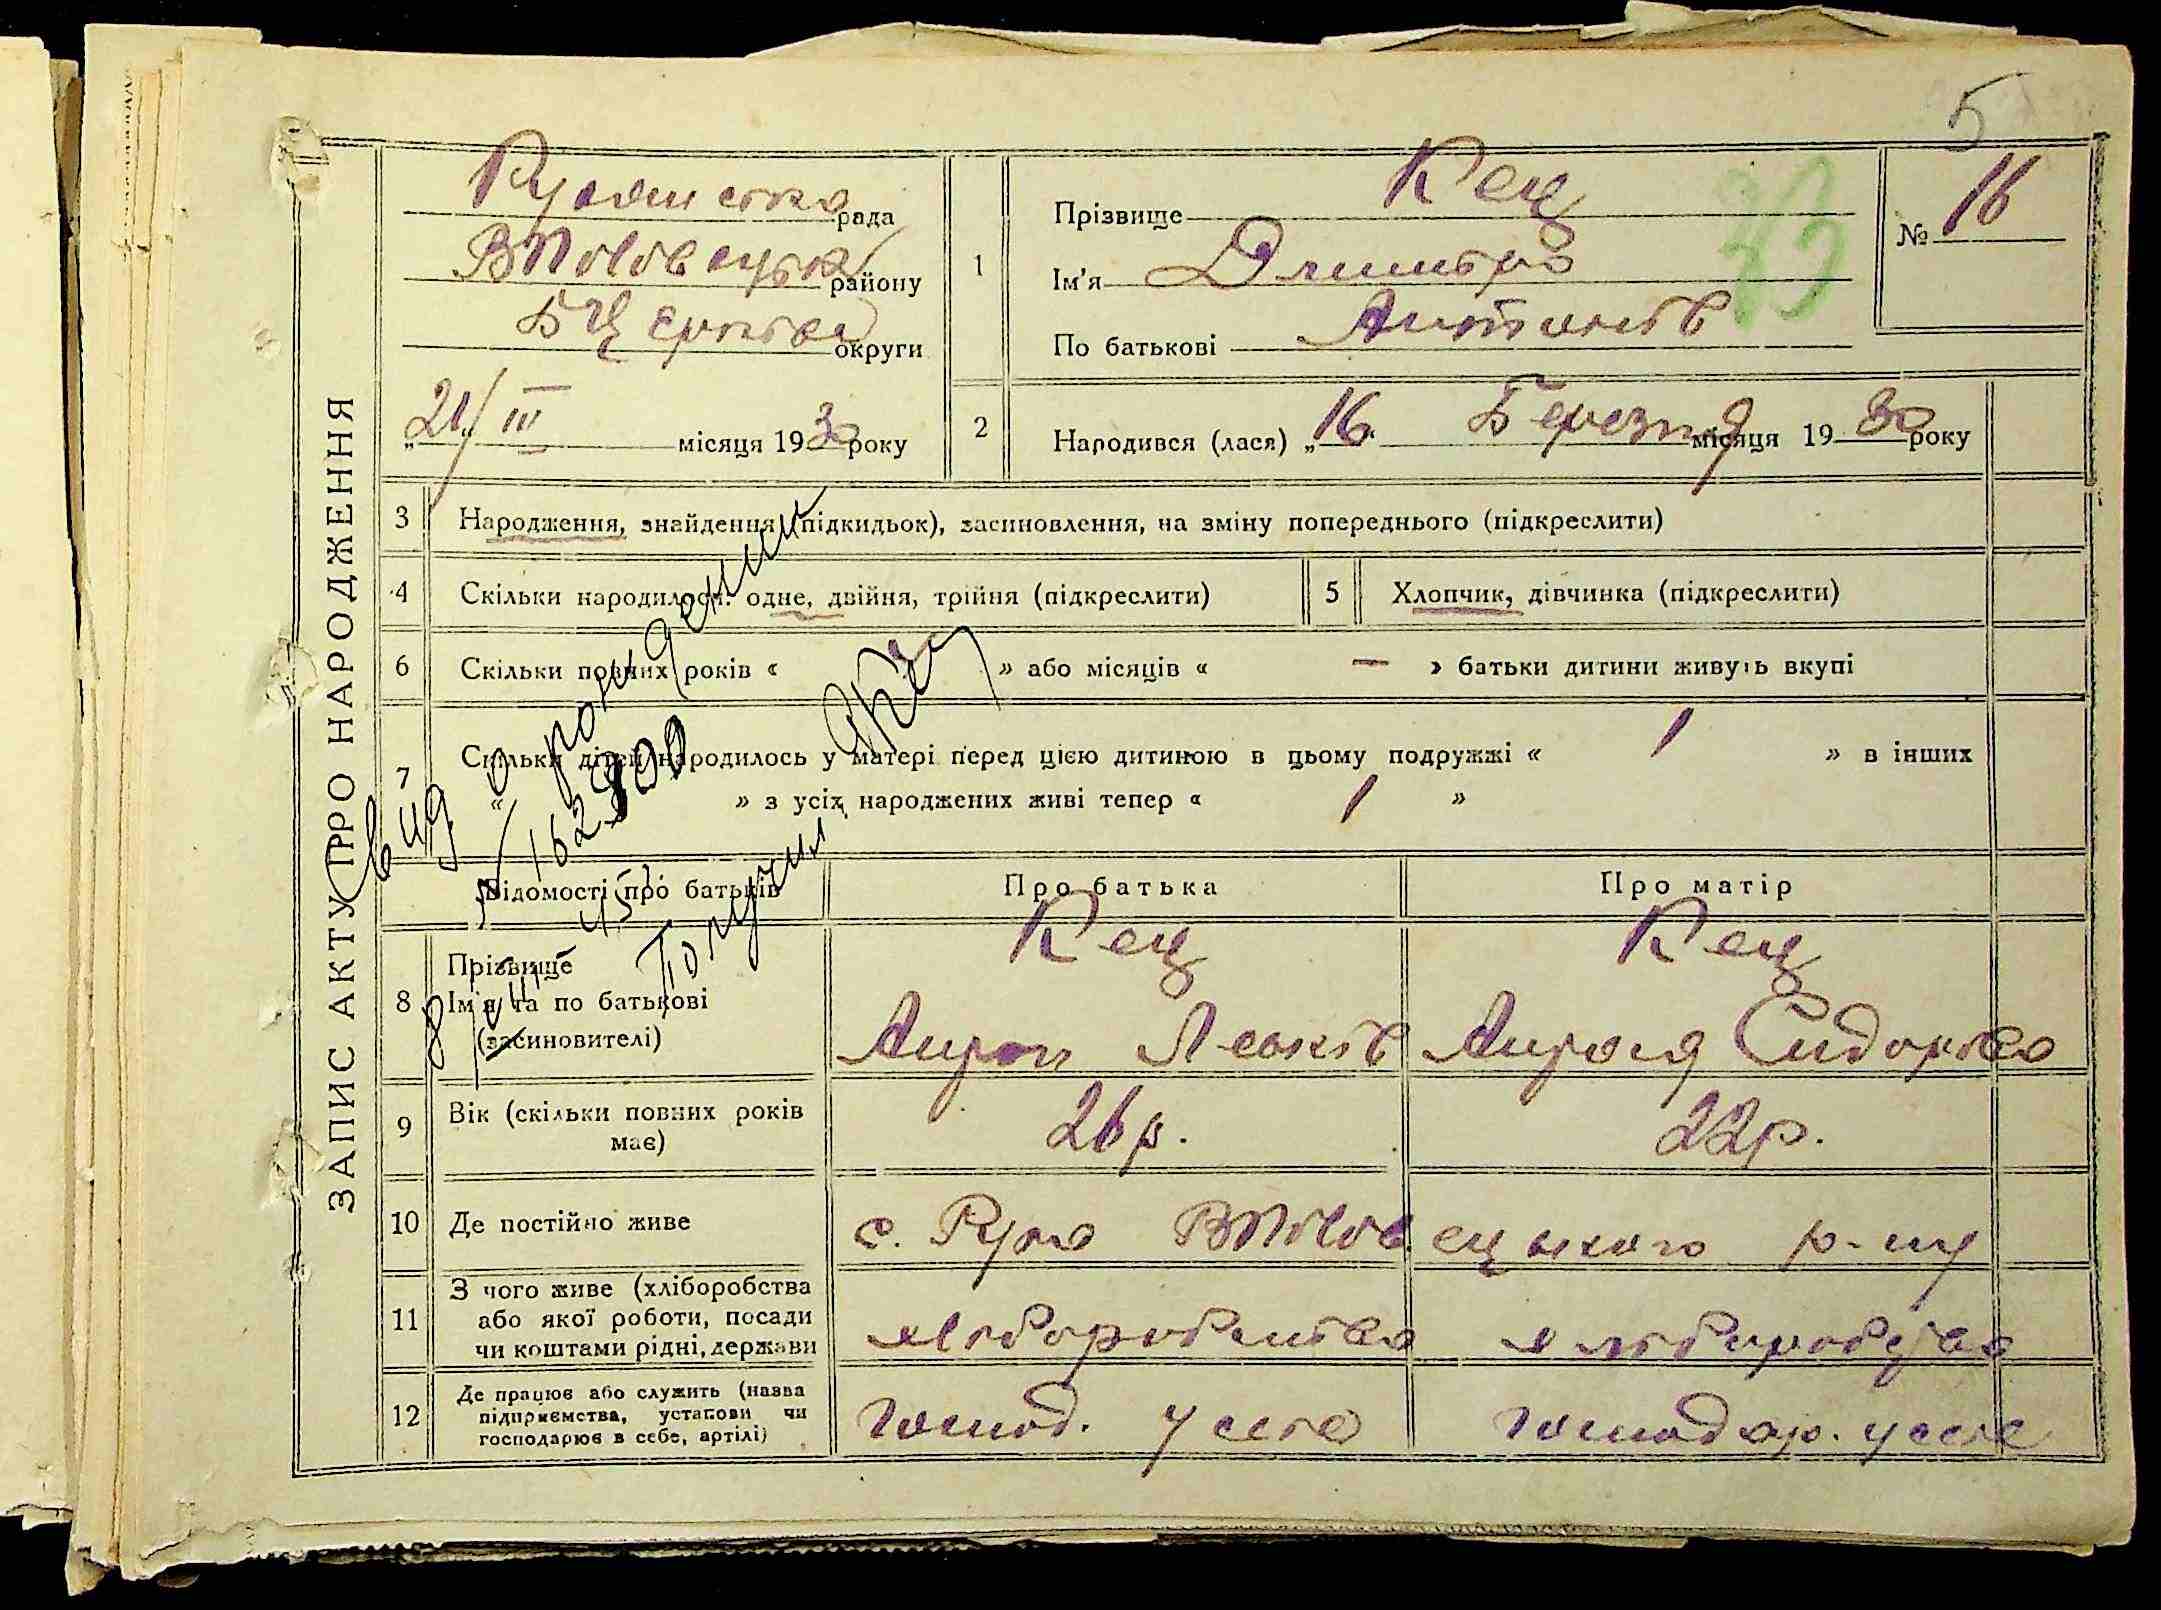 5
ЗАПИС АКТУ ПРО НАРОДЖЕННЯ
рада
району
Б Церківсь округи
21/III місяця 1930 року
1
Прізвище Кец
Ім'я Дмитро
По батькові
№ 16
33
2
Народився (лася) „16“ Березня місяця 1930 року
3
Народження, знайдення (підкидьок), засиновлення, на зміну попереднього (підкреслити)
4
Скільки народилося: одне, двійня, трійня (підкреслити)
5
Хлопчик, дівчинка (підкреслити)
6
Скільки повних років « » або місяців « — » батьки дитини живуть вкупі
7
Скільки дітей народилось у матері перед цією дитиною в цьому подружжі « 1 » в інших
« » з усіх народжених живі тепер « 1 »
о рождении
Получил
Відомості про батьків
Про батька
Про матір
8
Прізвище
Ім'я та по батькові
(засиновителі)
Кец
Кец
Сидорівна
9
Вік (скільки повних років має)
26 р.
22 р.
10
Де постійно живе
с. Руда ВПоловецького р-ну
11
З чого живе (хліборобства або якої роботи, посади чи коштами рідні, держави
хліборобство
12
Де працює або служить (назва підприємства, установи чи господарює в себе, артілі)
господ. у селі
господар. у селі